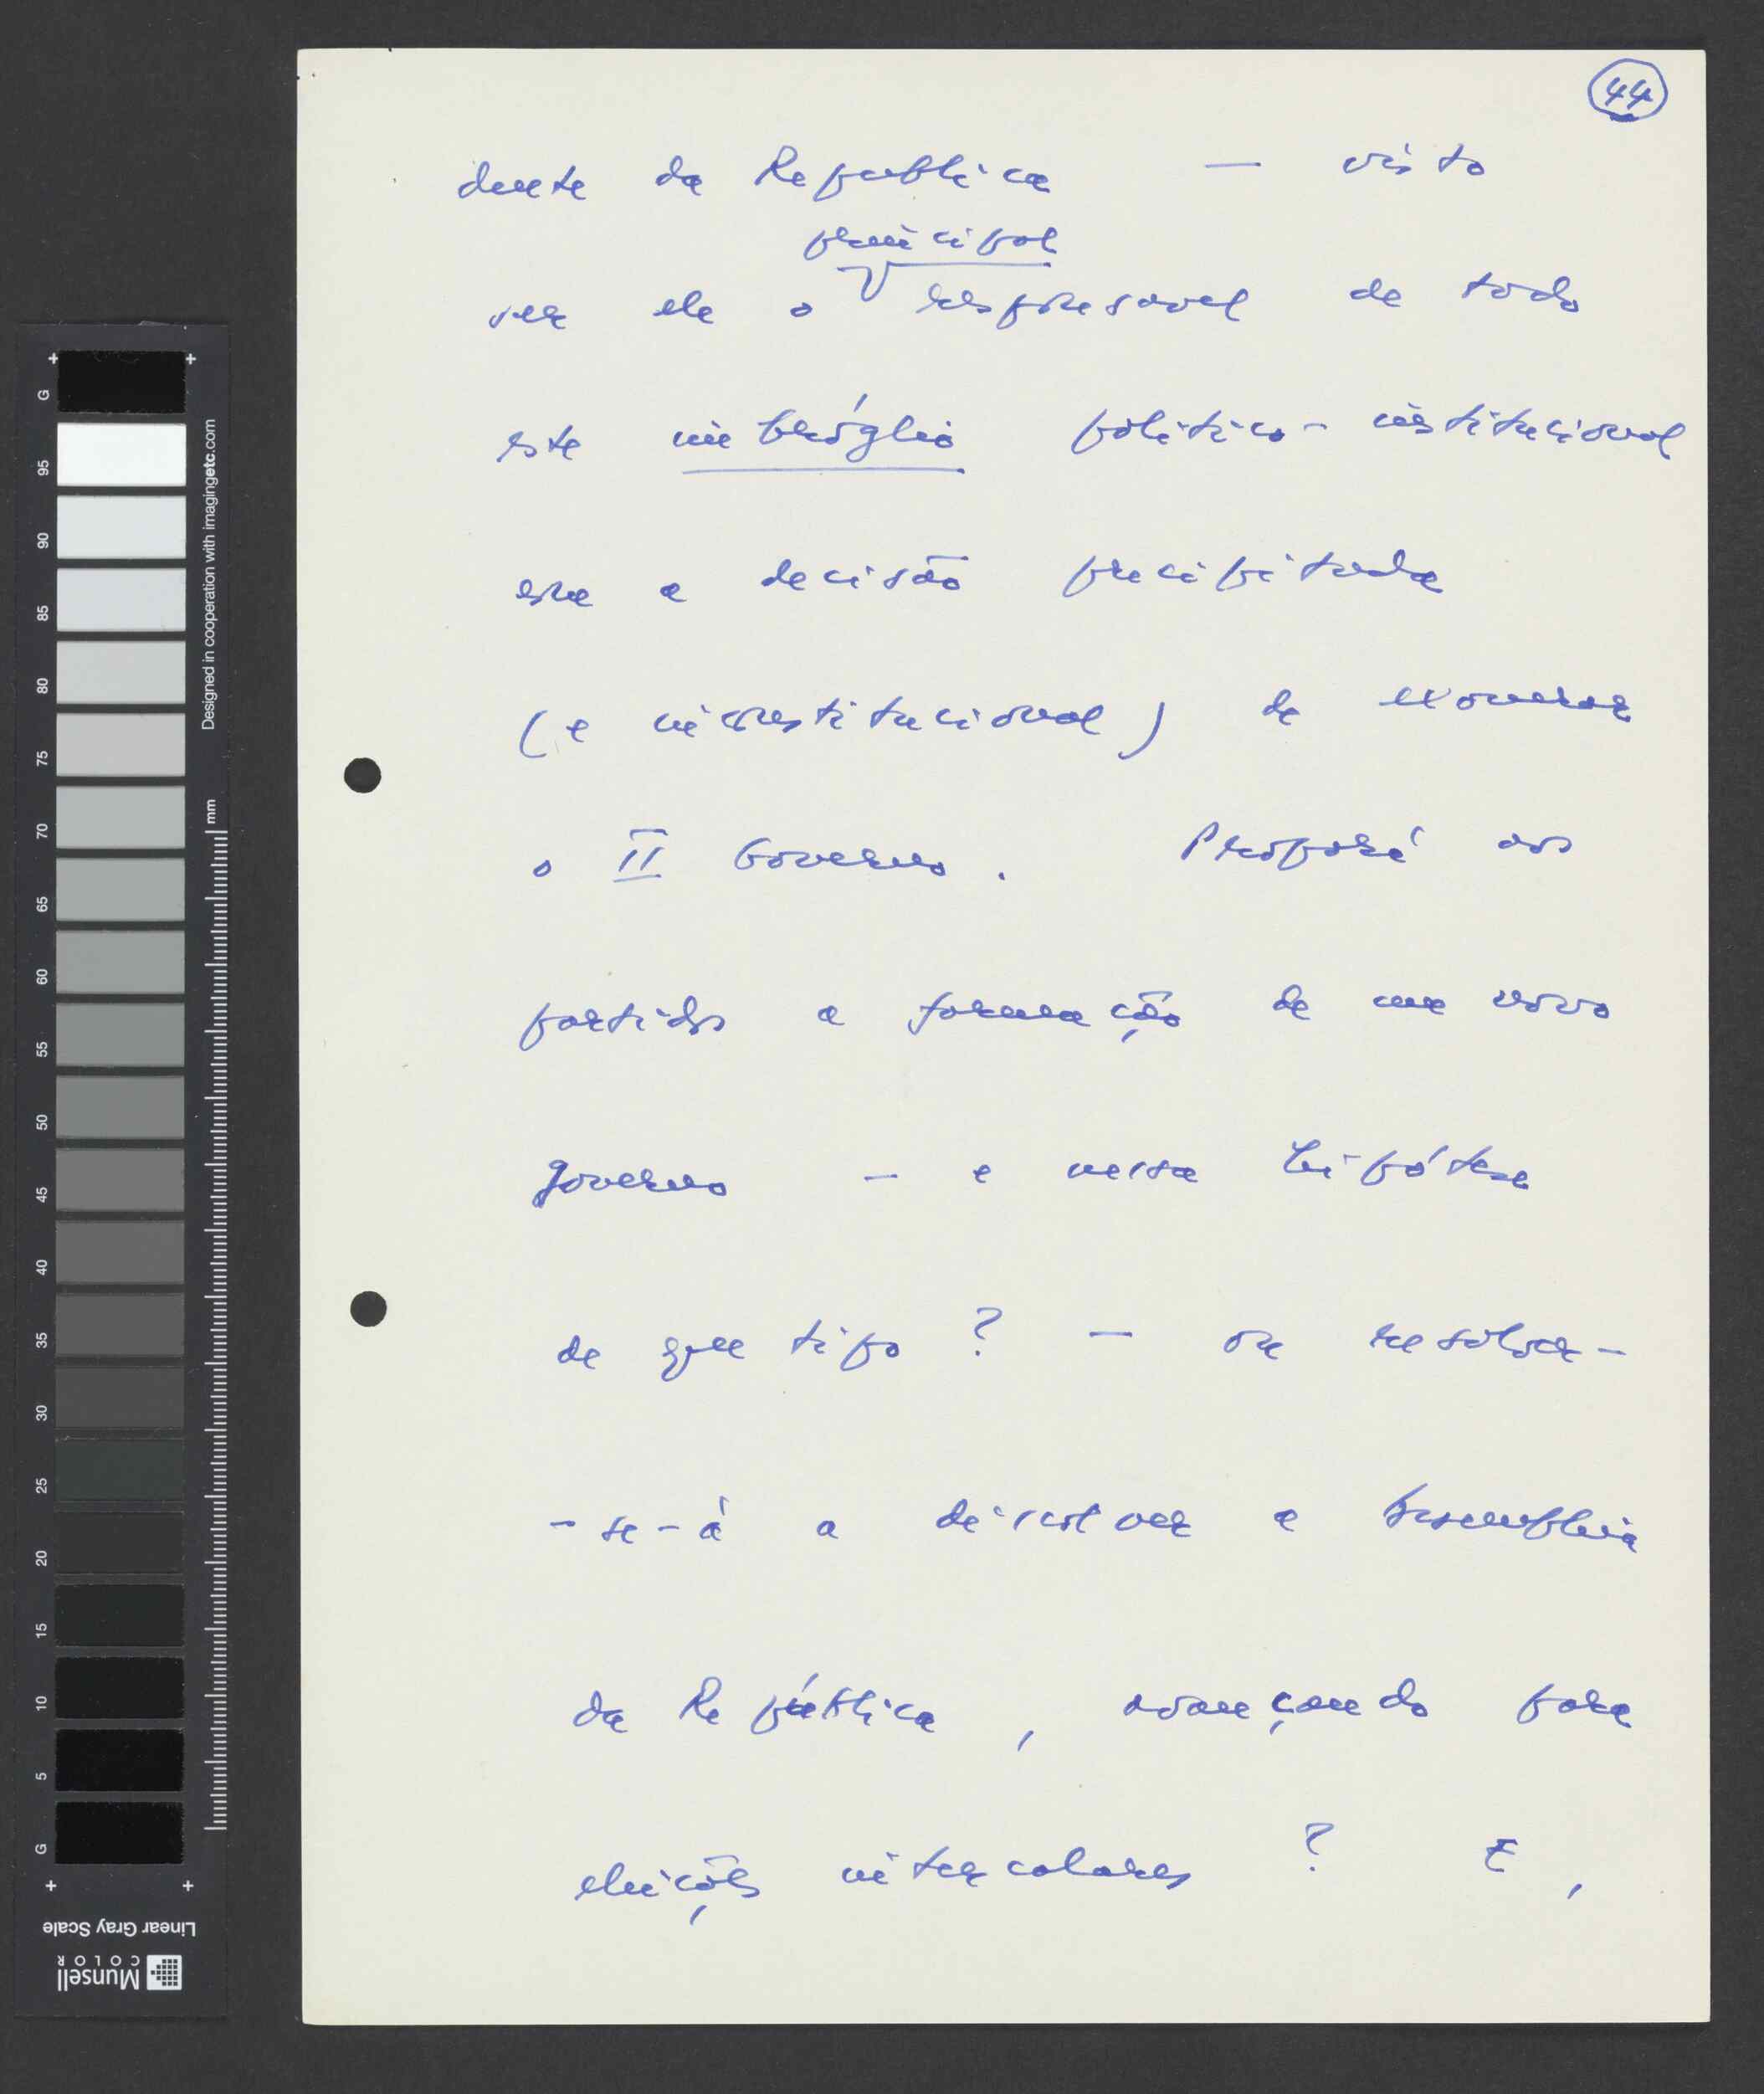 44
dente da Republica — visto
principal
ser ele o responsavel de todo
este imbróglio politico-institucional
a decisão precipitada
(e inconstitucional) de exonerar
o II Governo. Proporá aos
partidos a formação de um novo
governo — e nessa hipótese
de que tipo? — ou resolver-
-se-á a dissolver a Assembleia
da República, avançando para
eleições intercalares? E,
G
95
90
85
80
75
70
65
60
55
50
45
40
35
30
25
20
15
10
5
G
Designed in cooperation with imagingetc.com
mm
Linear Gray Scale
Munsell
COLOR